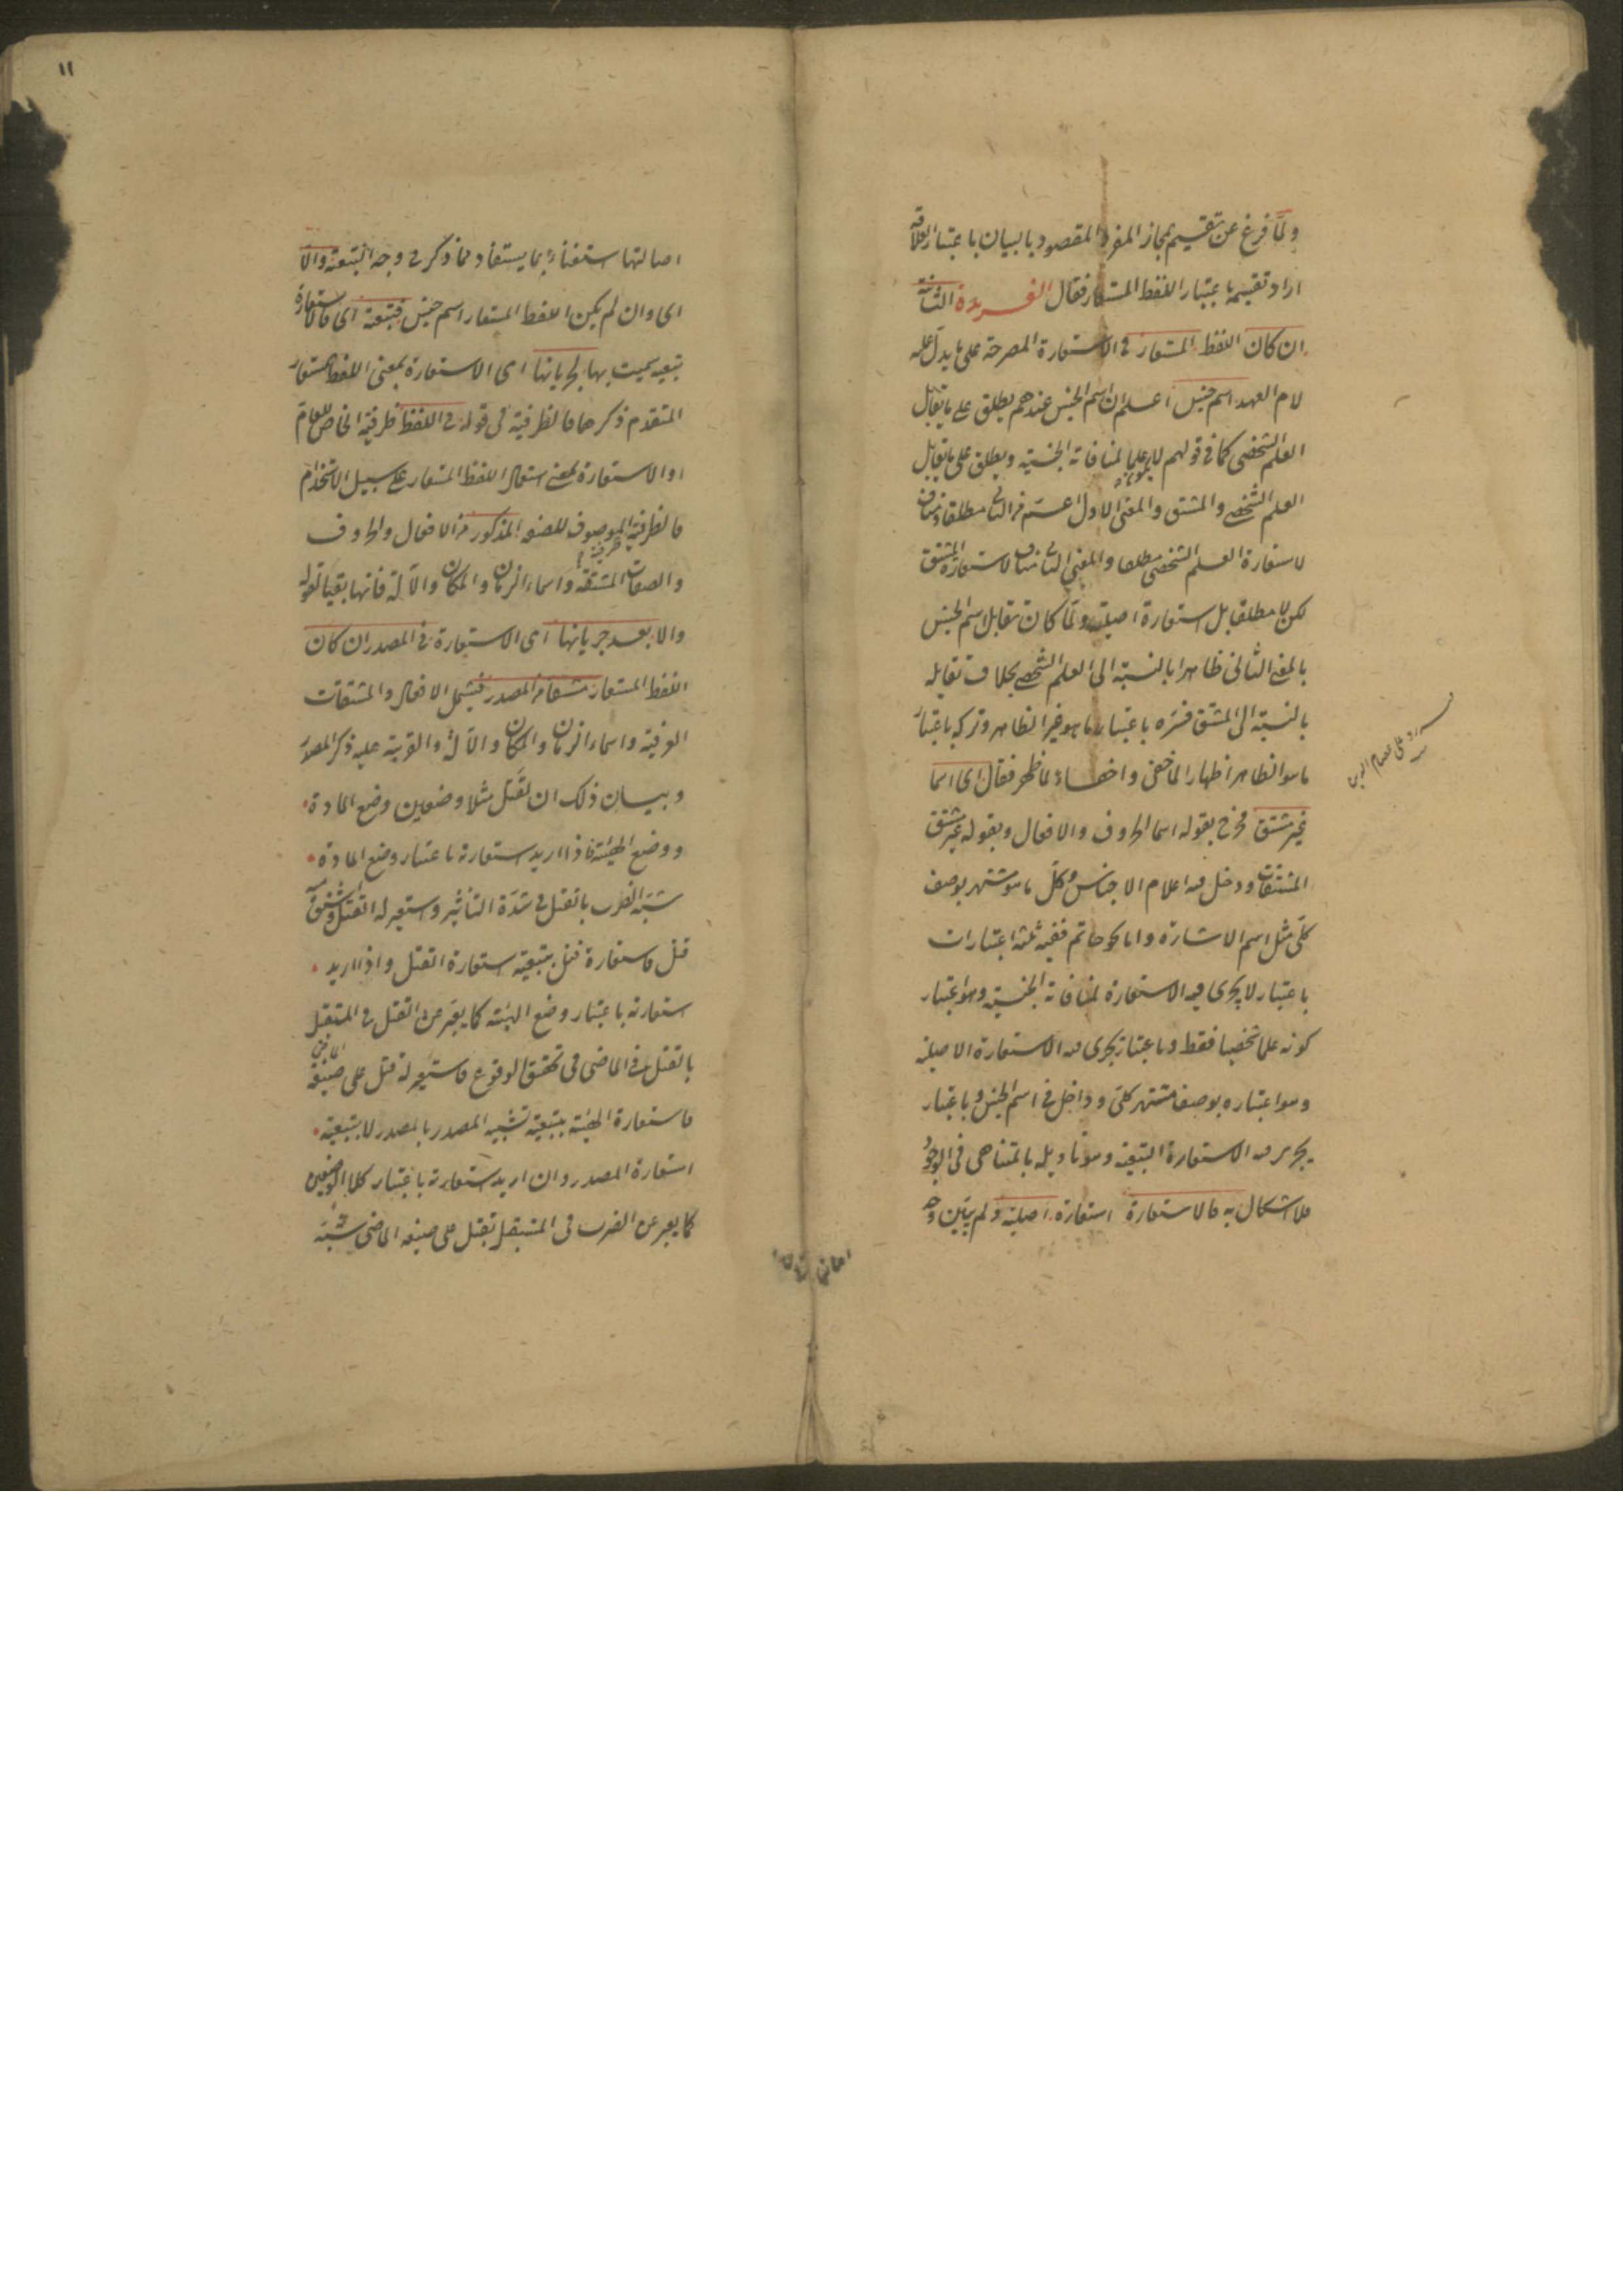 ولمّا فرغ عن تقسيم مجاز المفرد المقصود بالبيان باعتبار العلاقة
اراد تقسيمه باعتبار اللفظ المستعار فقال الفريدة الثانية
ان كان اللفظ المستعار فى الاستعارة المصرحة على ما يدل عليه
لام العهد اسم جنس اعلم ان اسم الجنس عندهم يطلق على ما يقابل
العلم الشخصى كما فى قولهم لا يكون علما لمنافاته الجنسية ويطلق على ما يقابل
العلم الشخصى والمشتق والمعنى الاول اعم من الثانى مطلقا ومناف
لاستعارة العلم الشخصى مطلقا والمعنى الثانى مناف لاستعارة المشتق
لكن لا مطلقا بل استعارة اصلية ولمّا كان تقابل اسم الجنس
بالمعنى الثانى ظاهرا بالنسبة الى العلم الشخصى بخلاف تقابله
بالنسبة الى المشتق فسّره باعتبار ما هو غير الظاهر وتركه باعتبار
ما هو الظاهر اظهارا لما خفى واخفاء لما ظهر فقال اى اسما
غير مشتق فخرج بقوله اسما الحروف والافعال وبقوله غير مشتق
المشتقات ودخل فيه اعلام الاجناس وكل ما هو مشتهر بوصف
كلّى مثل اسم الاشارة واما نحو حاتم ففيه ثلثة اعتبارات
باعتبار لا يجرى فيه الاستعارة لمنافاته الجنسية وهو اعتبار
كونه علما شخصيا فقط وباعتبار يجرى فيه الاستعارة الاصلية
وهو اعتباره بوصف مشتهر كلّى وداخل فى اسم الجنس وباعتبار
يجرى فيه الاستعارة التبعية وهو تاويله بالمتناهى فى الجود
فلا اشكال به فالاستعارة استعارة اصلية ولم يبيّن وجه
رد على عصام الدين
١١
اصالتها استغناء بما يستفاد مما ذكر فى وجه التبعية والاّ
اى وان لم يكن اللفظ المستعار اسم جنس فتبعية اى فالاستعارة
تبعية سميت بها لجريانها اى الاستعارة بمعنى اللفظ المستعار
المتقدم ذكرها فالظرفية فى قوله فى اللفظ ظرفية الخاص للعام
او الاستعارة بمعنى استعمال اللفظ المستعار على سبيل الاستخدام
فالظرفية ظرفية الموصوف للصفة المذكور من الافعال والحروف
والصفات المشتقة واسماء الزمان والمكان والآلة فانها بقيا لقوله
والا بعد جريانها اى الاستعارة فى المصدر ان كان
اللفظ المستعار مشتقا من المصدر فيشمل الافعال والمشتقات
العرفية واسماء الزمان والمكان والآلة والقرينة عليه ذكر المصدر
وبيان ذلك ان لقتل مثلا وضعين وضع المادة
ووضع الهيئة فاذا اريد استعارته باعتبار وضع المادة
شبّه الضرب بالقتل فى شدّة التأثير واستعير له القتل واشتق منه
قتل فاستعارة قتل بتبعية استعارة القتل واذا اريد
استعارته باعتبار وضع الهيئة كما يعبّر عن القتل فى المستقبل
بالقتل فى الماضى فى تحقق الوقوع فاستعير له قتل على صيغة الماضى
فاستعارة الهيئة بتبعية تشبيه المصدر بالمصدر لا بتبعية
استعارة المصدر وان اريد استعارته باعتبار كلا الوضعين
كما يعبر عن الضرب فى المستقبل بقتل على صيغة الماضى شبّه